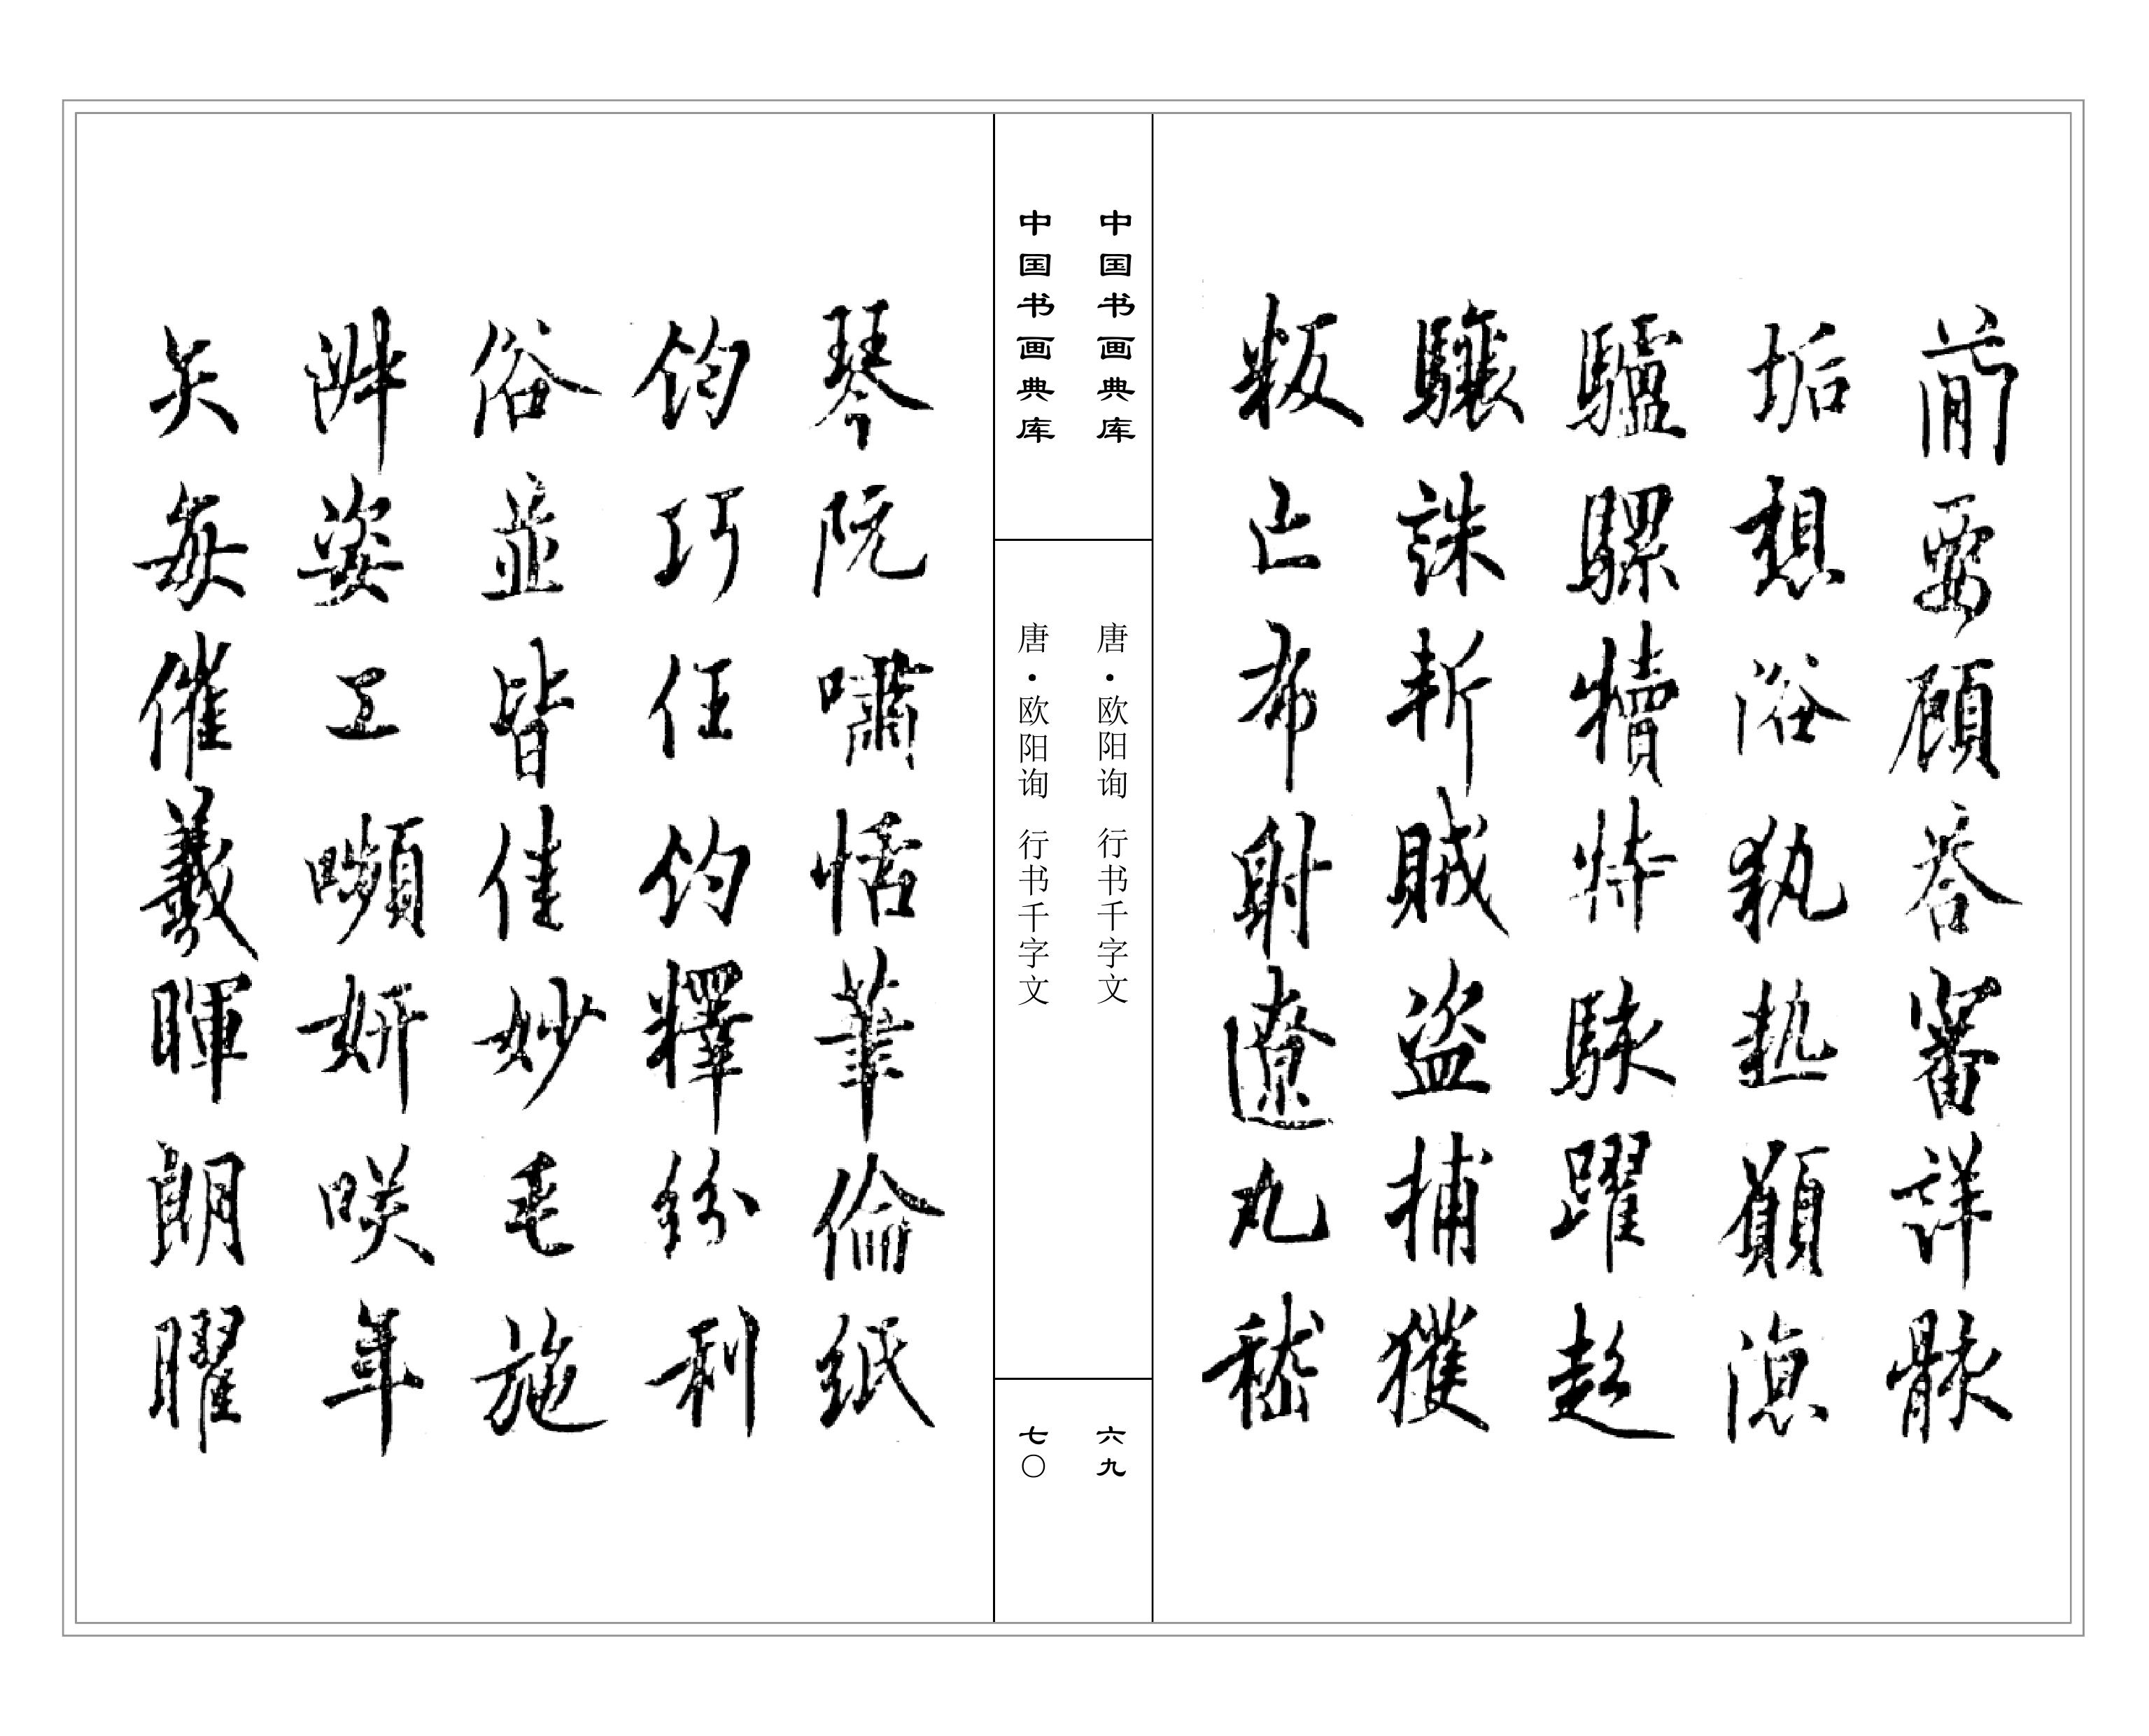 簡要顧荅審詳骸
垢想浴執熱願凉
驢騾犢特駭躍超
驤誅斬賊盗捕獲
叛亡布射遼丸嵇
中国书画典库
唐·欧阳询 行书千字文
六九
中国书画典库
唐·欧阳询 行书千字文
七〇
琴阮嘯恬筆倫紙
鈞巧任釣釋紛利
俗並皆佳妙毛施
淑姿工嚬妍咲年
矢每催羲暉朗曜